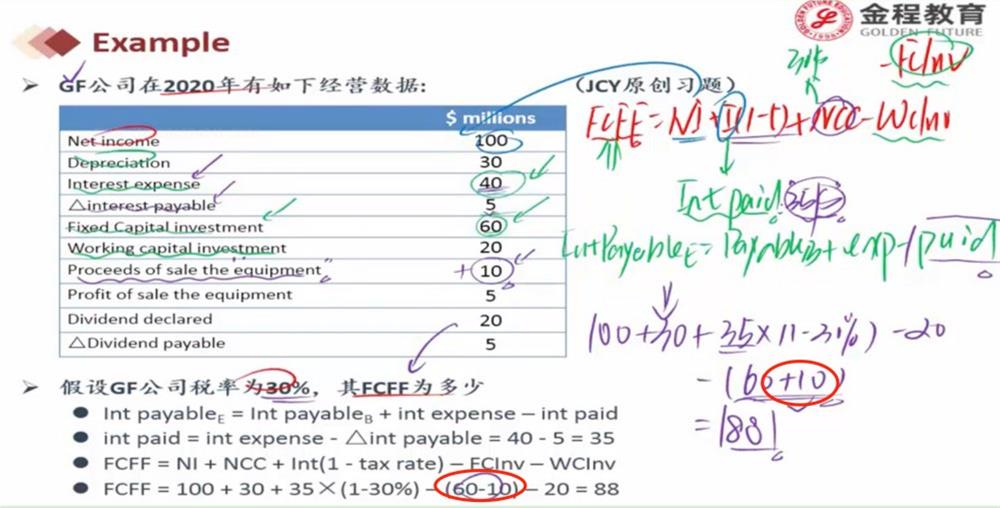 金程教育
GOLDEN FUTURE
Example
GF公司在2020年有如下经营数据:
(JCY原创习题)
$ millions
Net income 100
Depreciation 30
Interest expense 40
△interest payable 5
Fixed Capital investment 60
Working capital investment 20
Proceeds of sale the equipment +10
Profit of sale the equipment 5
Dividend declared 20
△Dividend payable 5
-FCInv
FCFF=NI+I(1-t)+NCC-WCInv
Int paid 35
IntPayableE=PayableB+exp-paid
100+30+35×(1-30%)-20
-(60+10)
=88
假设GF公司税率为30%，其FCFF为多少
Int payableE = Int payableB + int expense – int paid
int paid = int expense - △int payable = 40 - 5 = 35
FCFF = NI + NCC + Int(1 - tax rate) – FCInv – WCInv
FCFF = 100 + 30 + 35×(1-30%) – (60-10) – 20 = 88